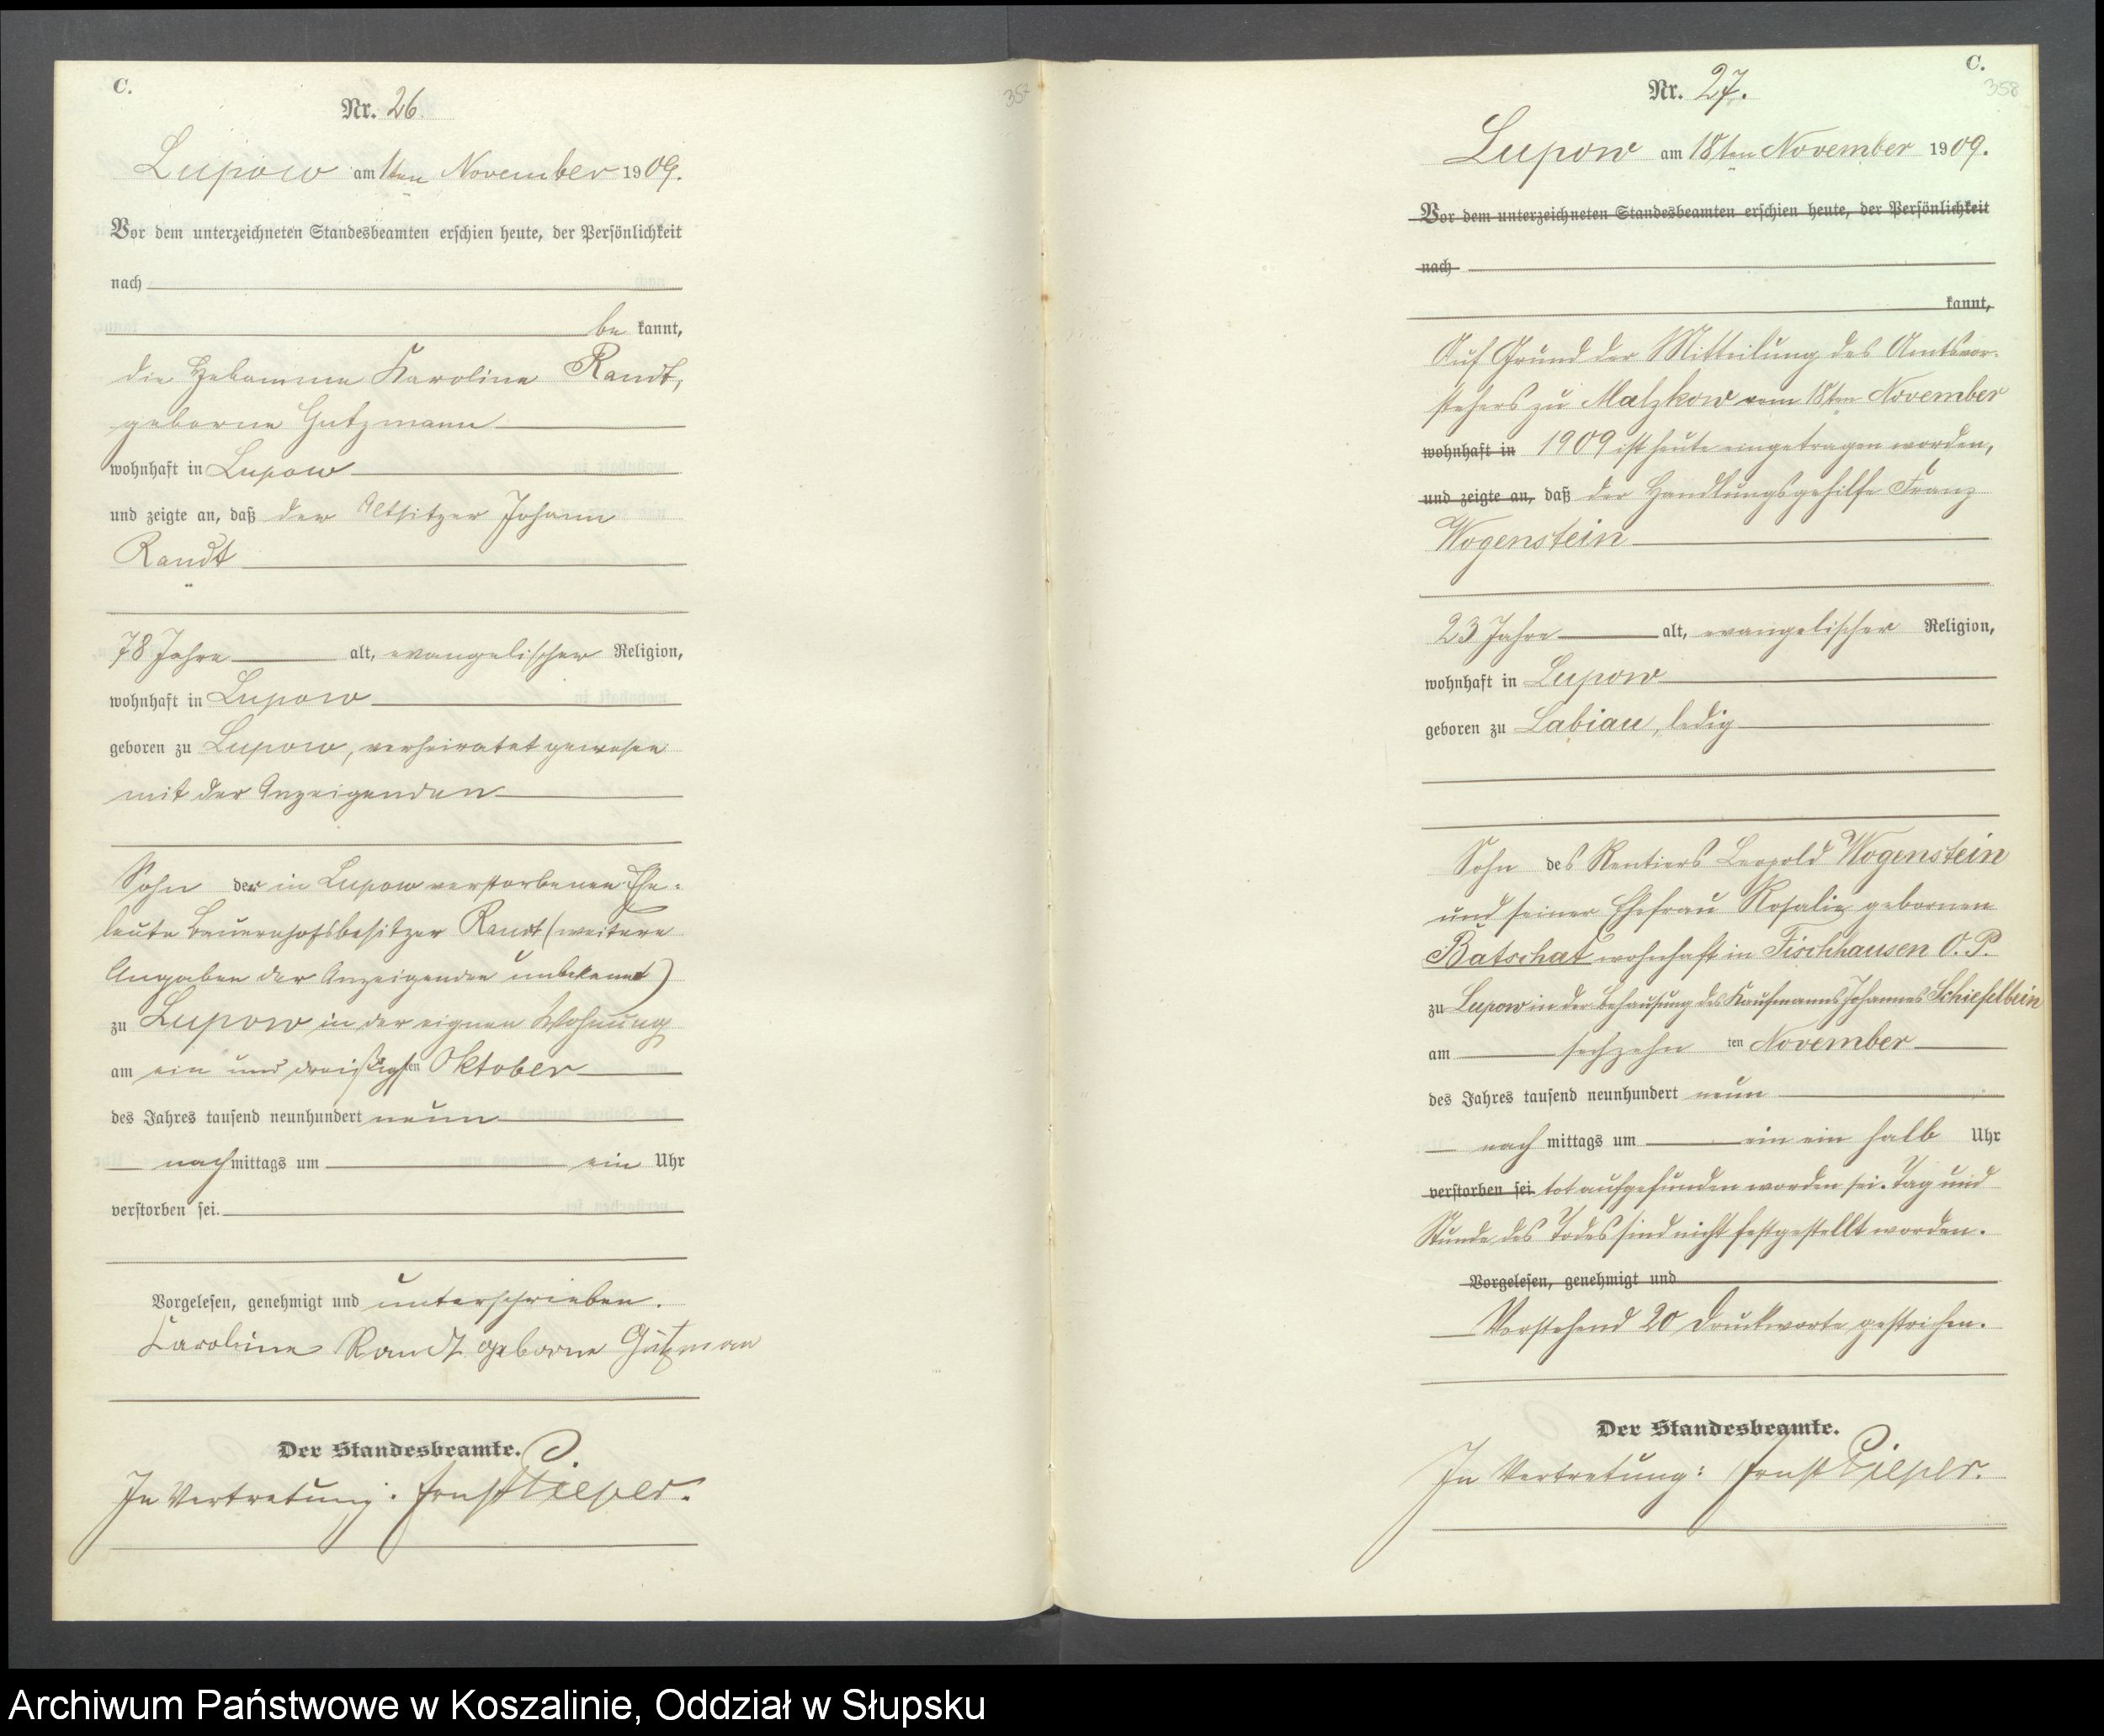 C.
357
Nr. 26.
Lupow am 1ten November 1909.
Vor dem unterzeichneten Standesbeamten erschien heute, der Persönlichkeit
nach
be kannt,
die Hebamme Karoline Randt,
geborne Gutzmann
wohnhaft in Lupow
und zeigte an, daß der Altsitzer Johann
Randt
78 Jahre alt, evangelischer Religion,
wohnhaft in Lupow
geboren zu Lupow, verheiratet gewesen
mit der Anzeigenden
Sohn der in Lupow verstorbenen Ehe-
leute Bauernhofsbesitzer Randt (weitere
Angaben der Anzeigenden unbekannt)
zu Lupow in der eignen Wohnung
am ein und dreißigsten Oktober
des Jahres tausend neunhundert neun
nachmittags um ein Uhr
verstorben sei.
Vorgelesen, genehmigt und unterschrieben.
Karoline Randt geborne Gutzman
Der Standesbeamte.
In Vertretung: Ernst Pieper.
C.
358
Nr. 27.
Lupow am 18ten November 1909.
Vor dem unterzeichneten Standesbeamten erschien heute, der Persönlichkeit
nach
kannt,
Auf Grund der Mitteilung des Amtsvor-
stehers zu Malzkow vom 18ten November
wohnhaft in 1909 ist heute eingetragen worden,
und zeigte an, daß der Handlungsgehilfe Franz
Wogenstein
23 Jahre alt, evangelischer Religion,
wohnhaft in Lupow
geboren zu Labiau, ledig
Sohn des Rentiers Leopold Wogenstein
und seiner Ehefrau Rosalie gebornen
Batschat wohnhaft in Fischhausen O. P.
zu Lupow in der Behausung des Kaufmanns Johannes Schiefelbein
am sechzehn ten November
des Jahres tausend neunhundert neun
nach mittags um ein ein halb Uhr
verstorben sei tot aufgefunden worden sei. Tag und
Stunde des Todes sind nicht festgestellt worden.
Vorgelesen, genehmigt und
Vorstehend 20 Druckworte gestrichen.
Der Standesbeamte.
In Vertretung: Ernst Pieper.
Archiwum Państwowe w Koszalinie, Oddział w Słupsku